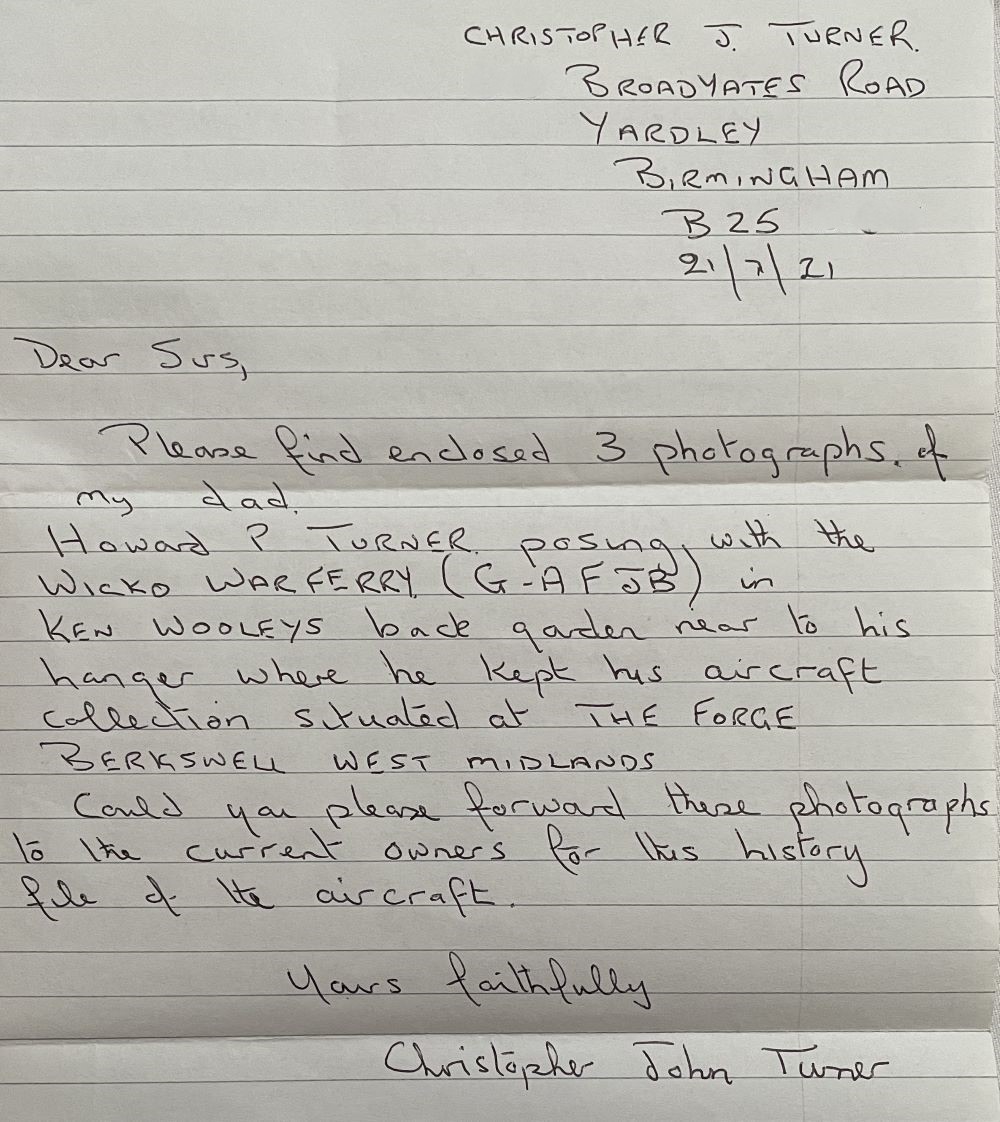 CHRISTOPHER J. TURNER.
BROADYATES ROAD
YARDLEY
BIRMINGHAM
B25
21/7/21
Dear Sirs,
Please find enclosed 3 photographs. of
my dad.
Howard P TURNER. posing, with the
WICKO WARFERRY, (G-AFJB) in
KEN WOOLEYS back garden near to his
hanger where he kept his aircraft
collection situated at THE FORGE
BERKSWELL WEST MIDLANDS
Could you please forward these photographs
to the current owners for this history
file of the aircraft.
Yours faithfully
Christopher John Turner